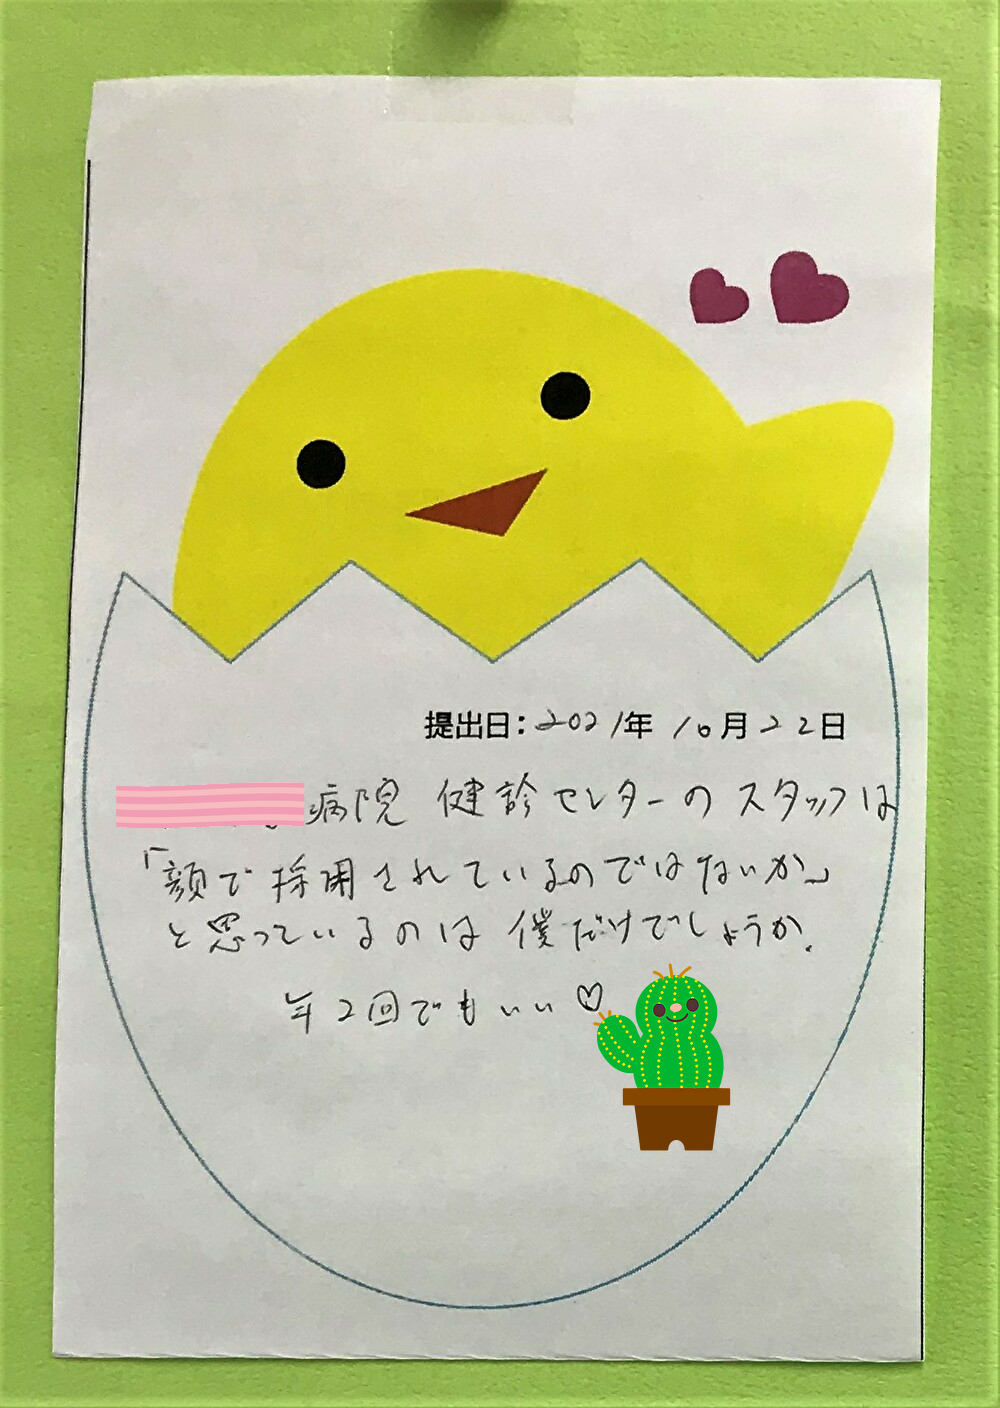 提出日：2021年 10月22日
病院 健診センターのスタッフは
「顔で採用されているのではないか」
と思っているのは 僕だけでしょうか.
年2回でもいい♡